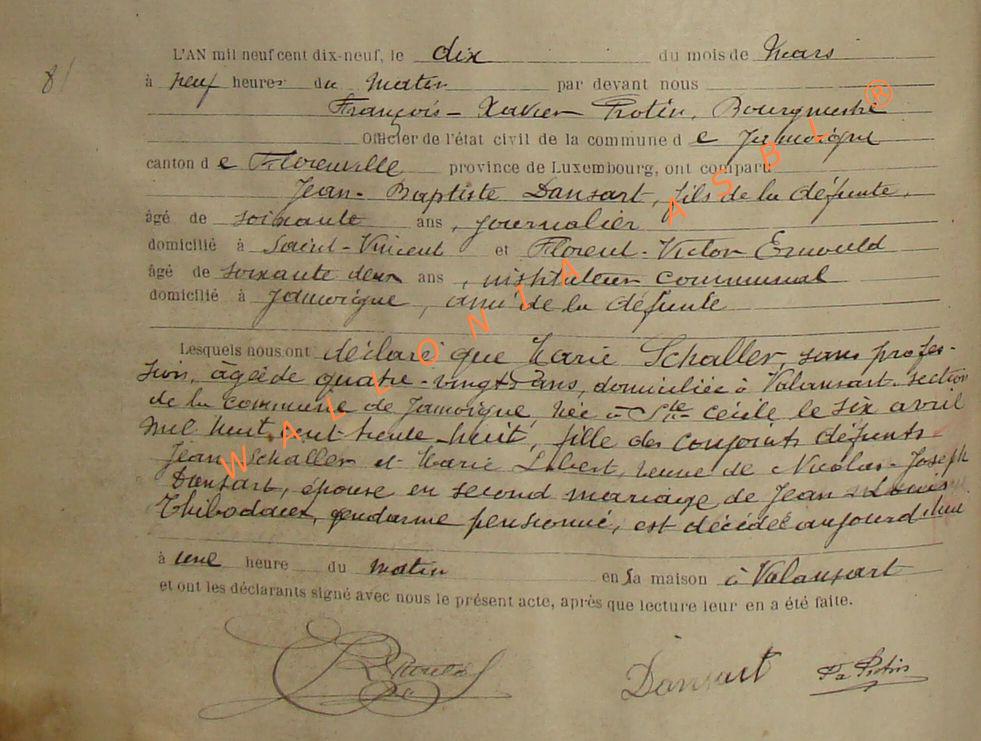 8/
L'AN mil neuf cent dix-neuf, le dix du mois de Mars
à neuf heures du matin par devant nous
François-Xavier Protin, Bourgmestre
Officier de l'état civil de la commune d e Jamoigne
canton d e Florenville province de Luxembourg, ont comparu
Jean-Baptiste Dansart, fils de la défunte,
âgé de soixante ans, journalier
domicilié à Saint-Vincent et Florent-Victor Ernould
âgé de soixante deux ans, instituteur communal
domicilié à Jamoigne, ami de la défunte
Lesquels nous ont déclaré que Marie Schaller, sans profes-
sion, agée de quatre-vingts ans, domiciliée à Valansart section
de la commune de Jamoigne, née à Ste Cécile le six avril
mil huit cent trente huit, fille des conjoints défunts
Jean Schaller et Marie Libert, veuve de Nicolas-Joseph
Dansart, épouse en second mariage de Jean Louis
Thibodaux, gendarme pensionné, est décédée aujourd'hui
à une heure du matin en sa maison à Valansart
et ont les déclarants signé avec nous le présent acte, après que lecture leur en a été faite.
Dansart
WALLONIA ASBL ®